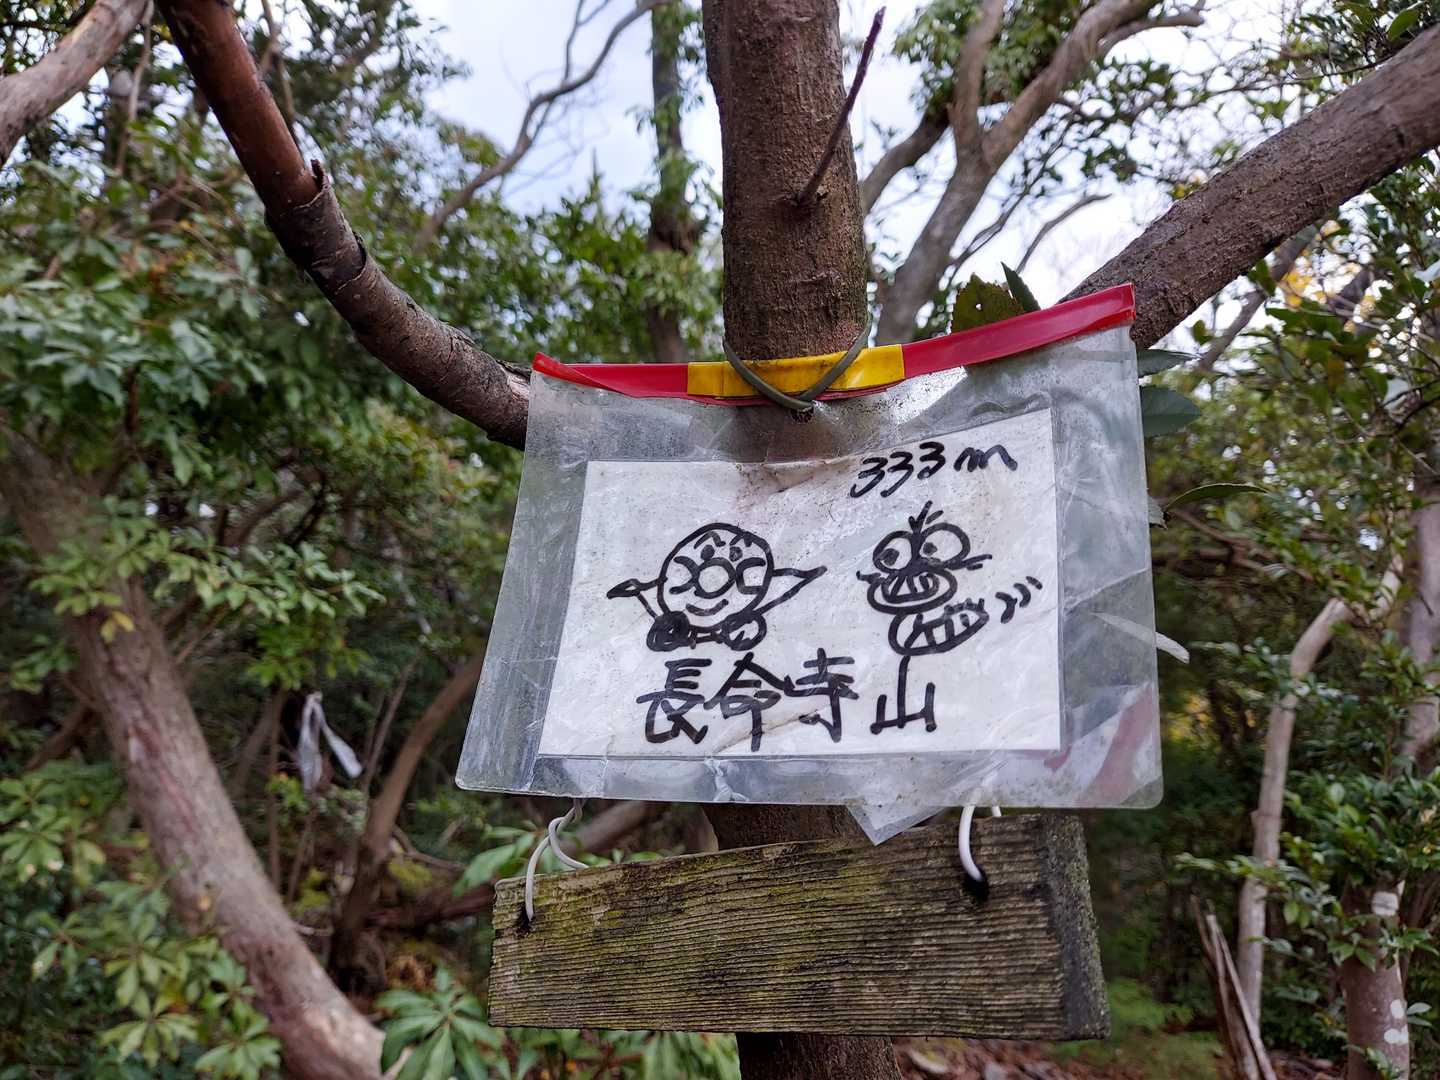 333m
長命寺山